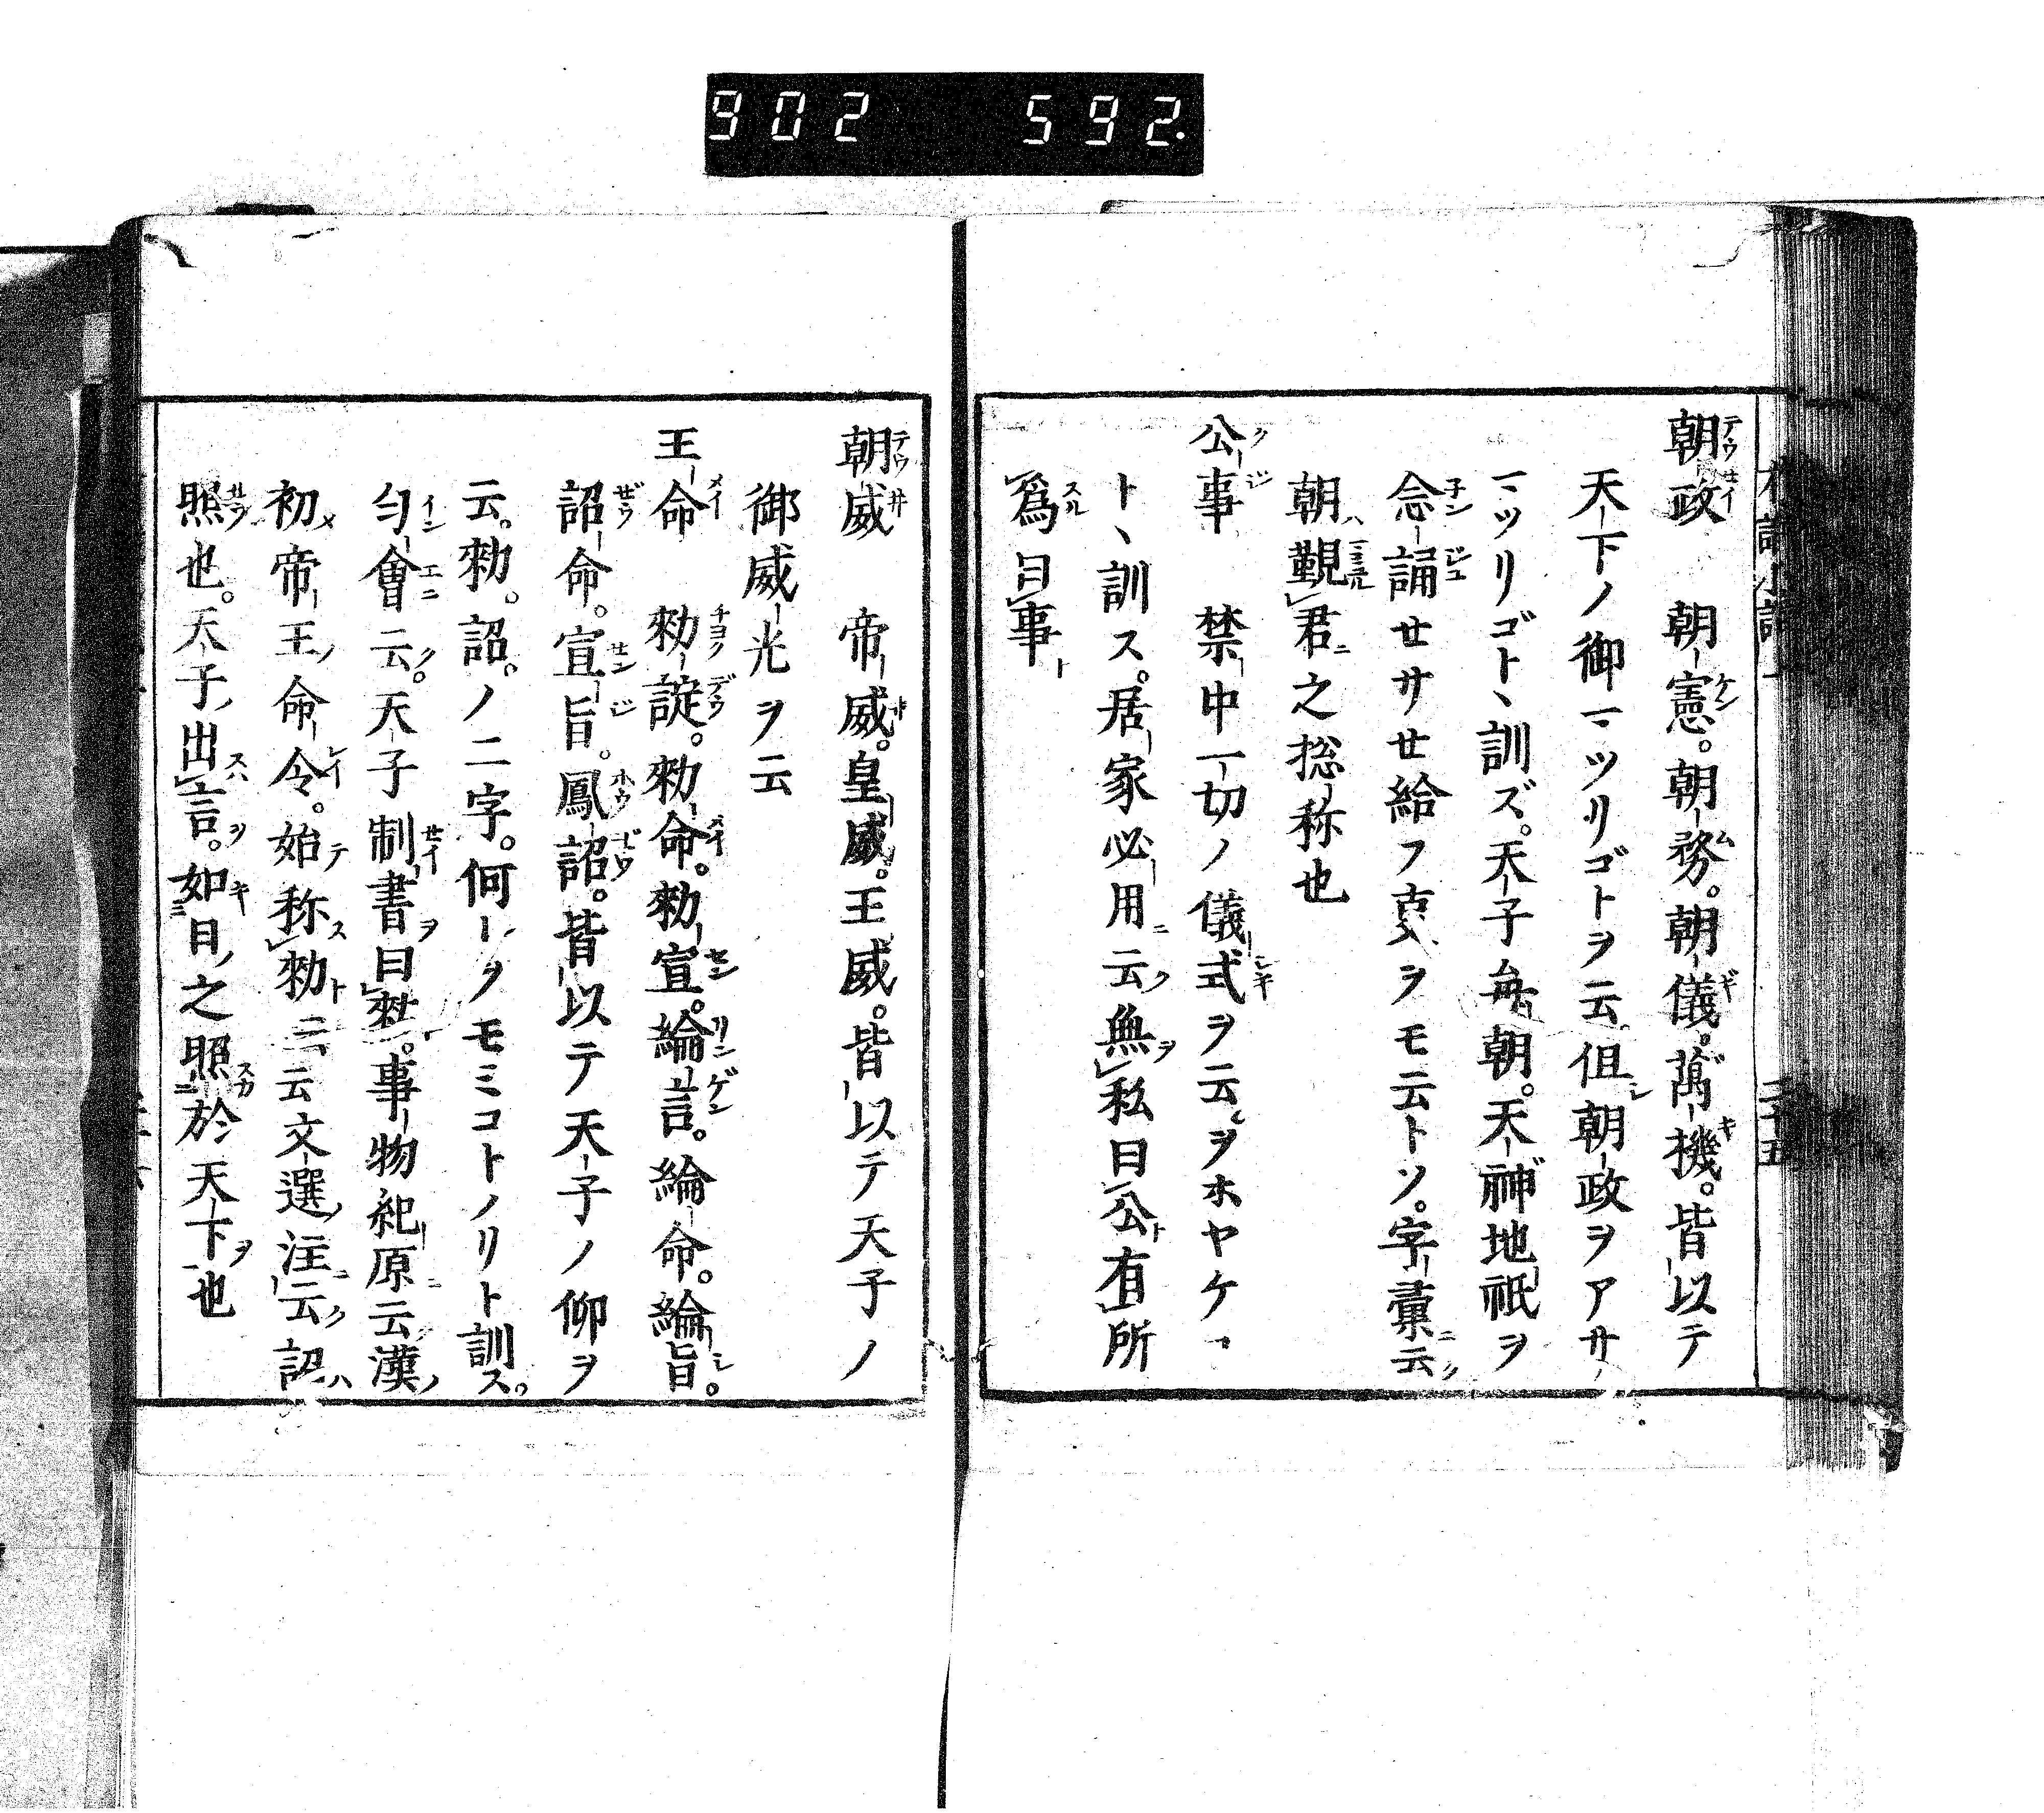 902 592.
朝政 朝憲。朝務。朝儀。萬機。皆以テ
天下ノ御マツリゴトヲ云但朝政ヲアサ
マツリゴトヽ訓ズ。天子毎朝。天神地祇ヲ
念誦セサセ給フ支ヲモ云トソ。字彙云
朝覲君之捴称也
公事 禁中一切ノ儀式ヲ云ヲホヤケコ
トヽ訓ス。居家必用云無私曰公有所
爲曰事
朝威 帝威。皇威。王威。皆以テ天子ノ
御威光ヲ云
王命 勅諚。勅命。勅宣。綸言。綸命。綸旨。
詔命。宣旨。鳳詔。皆以テ天子ノ仰ヲ
云。勅。詔。ノ二字。何ーヲモミコトノリト訓ス。
匀會云。天子制書曰勅。事物紀原云漢
初帝王命令。始称勅ニ云文選注云詔ハ
照也。天子出言。如日之照於天下也